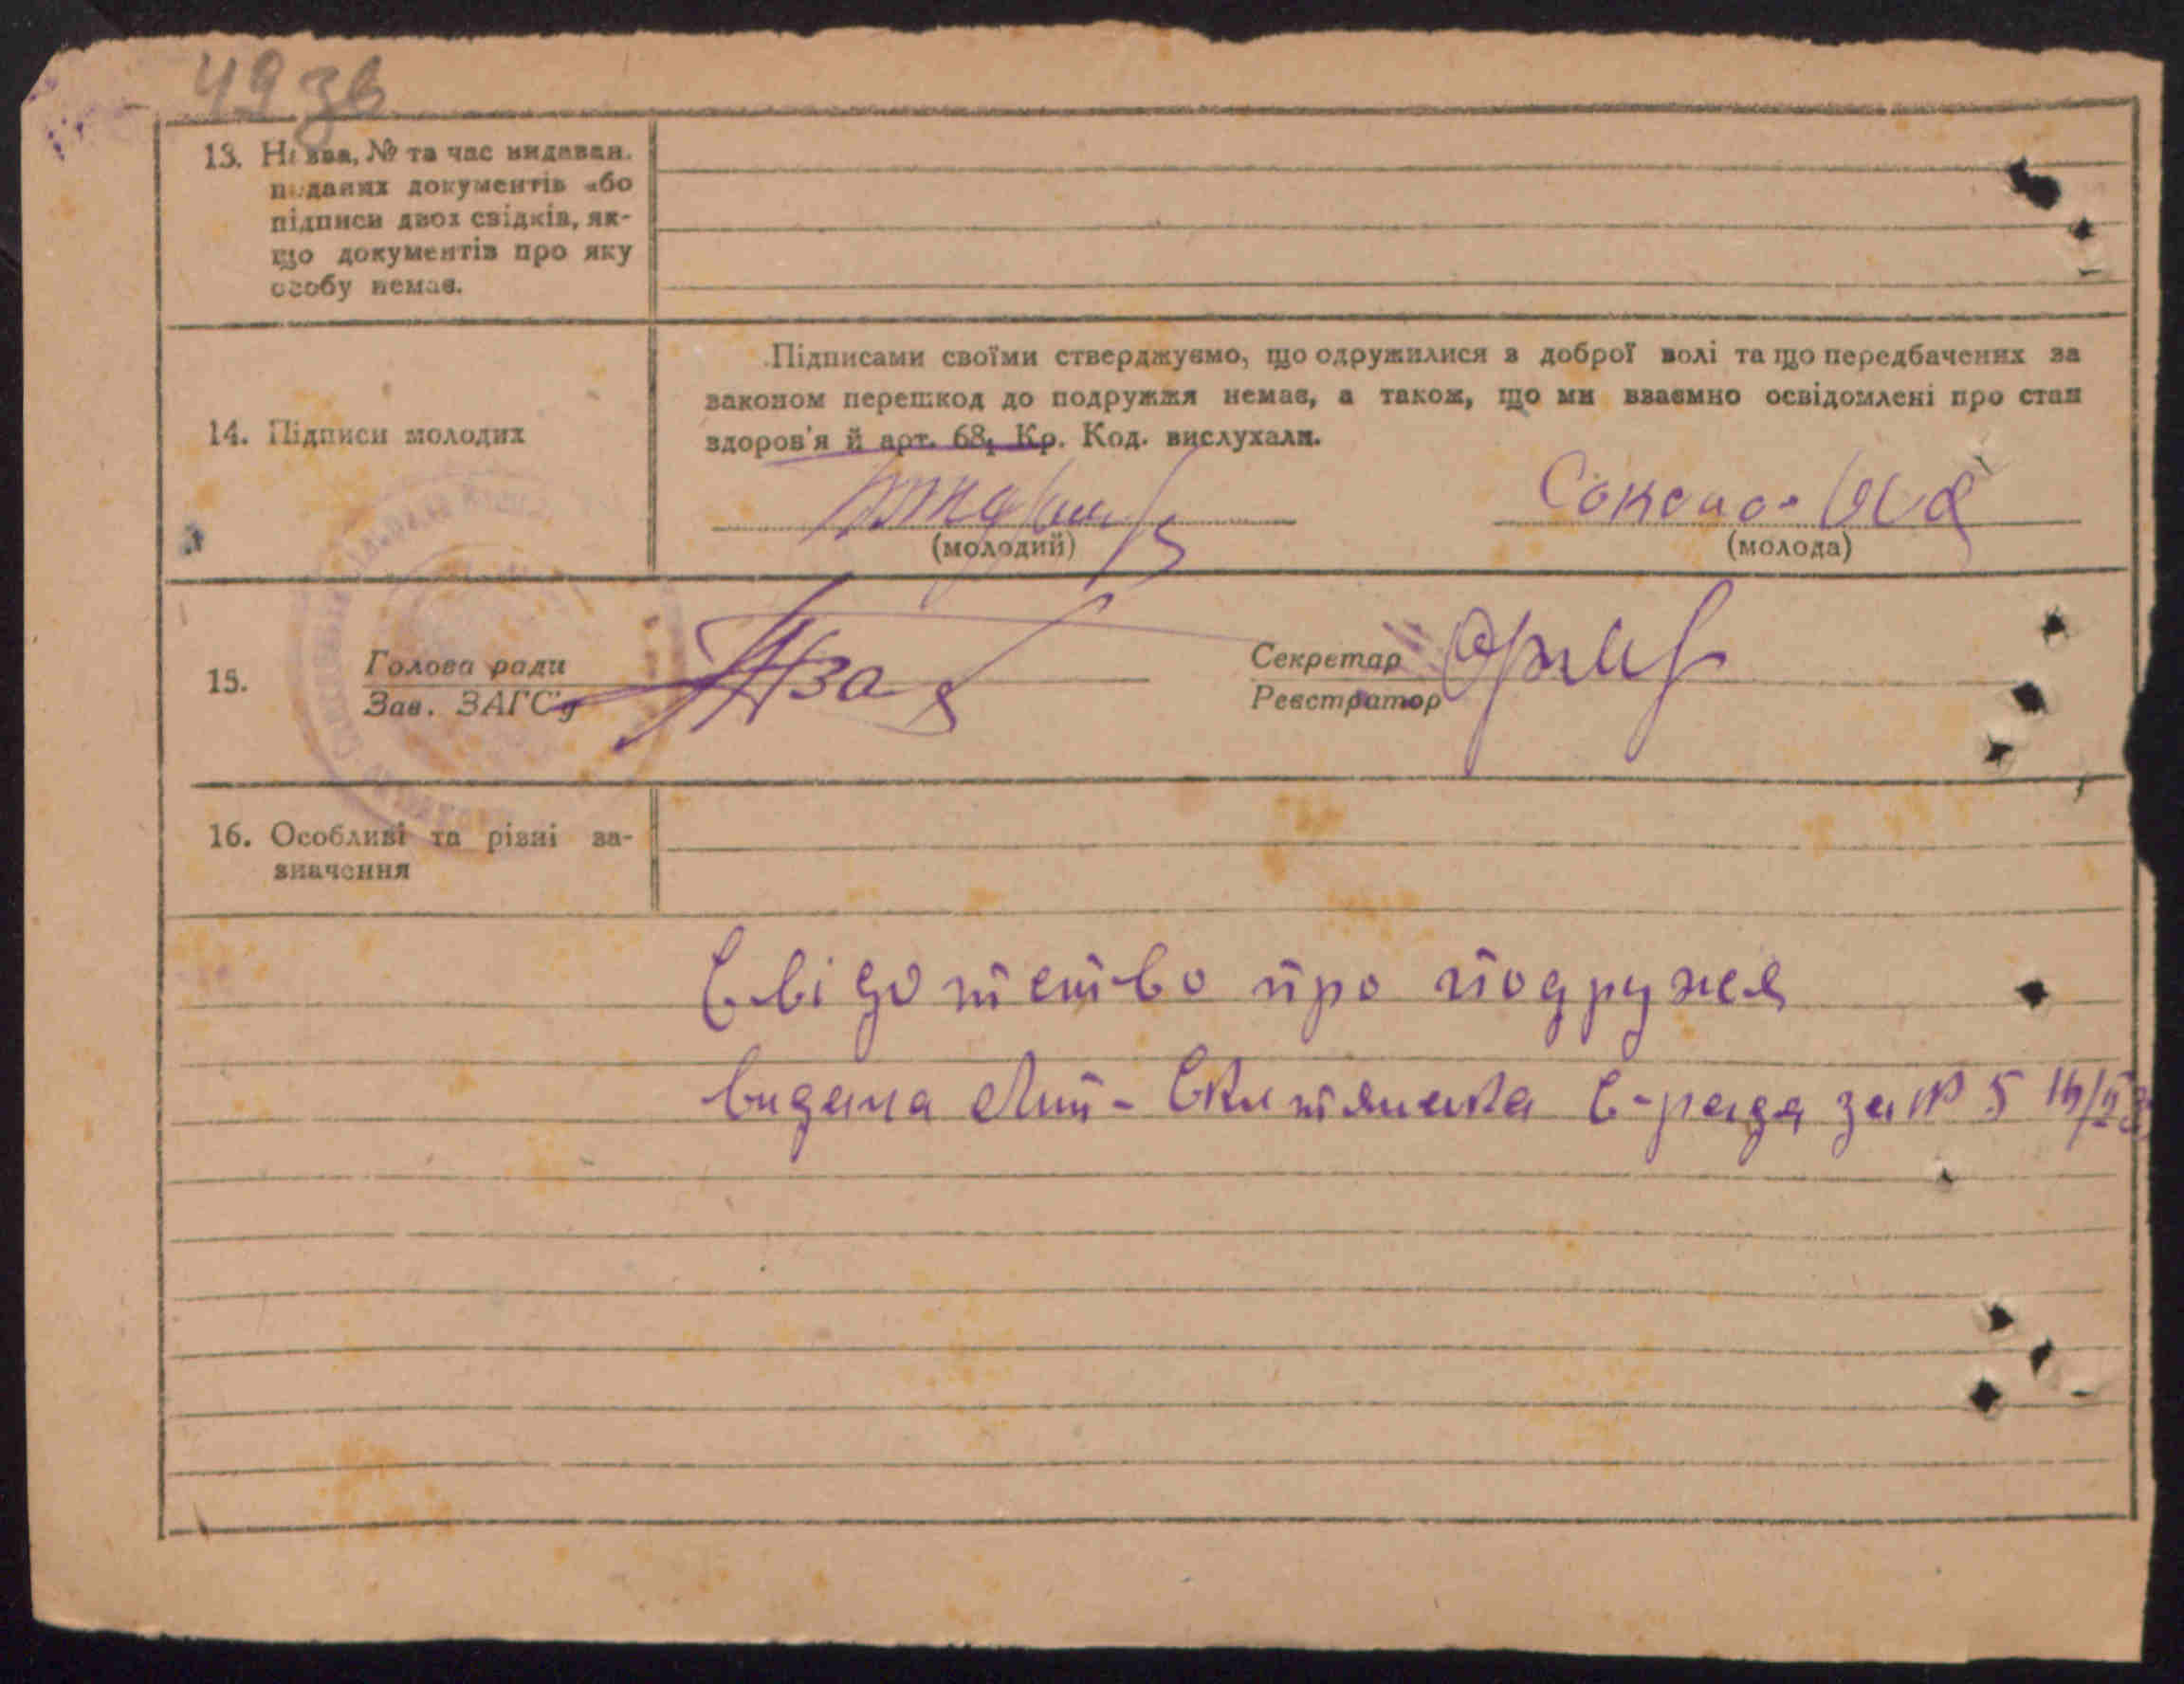 49 зв
13. Назва, № та час видаван.
поданих документів або
підписи двох свідків, як-
що документів про яку
особу немає.
14. Підписи молодих
Підписами своїми стверджуємо, що одружилися з доброї волі та що передбачених за
законом перешкод до подружжя немає, а також, що ми взаємно освідомлені про стан
здоров'я й арт. 68, Кр. Код. вислухали.
(молодий)
(молода)
15.
Голова ради
Зав. ЗАГС'у
Секретар
Реєстратор
16. Особливі та різні за-
значення
Свідотство про подружжя
видана С-рада за № 5